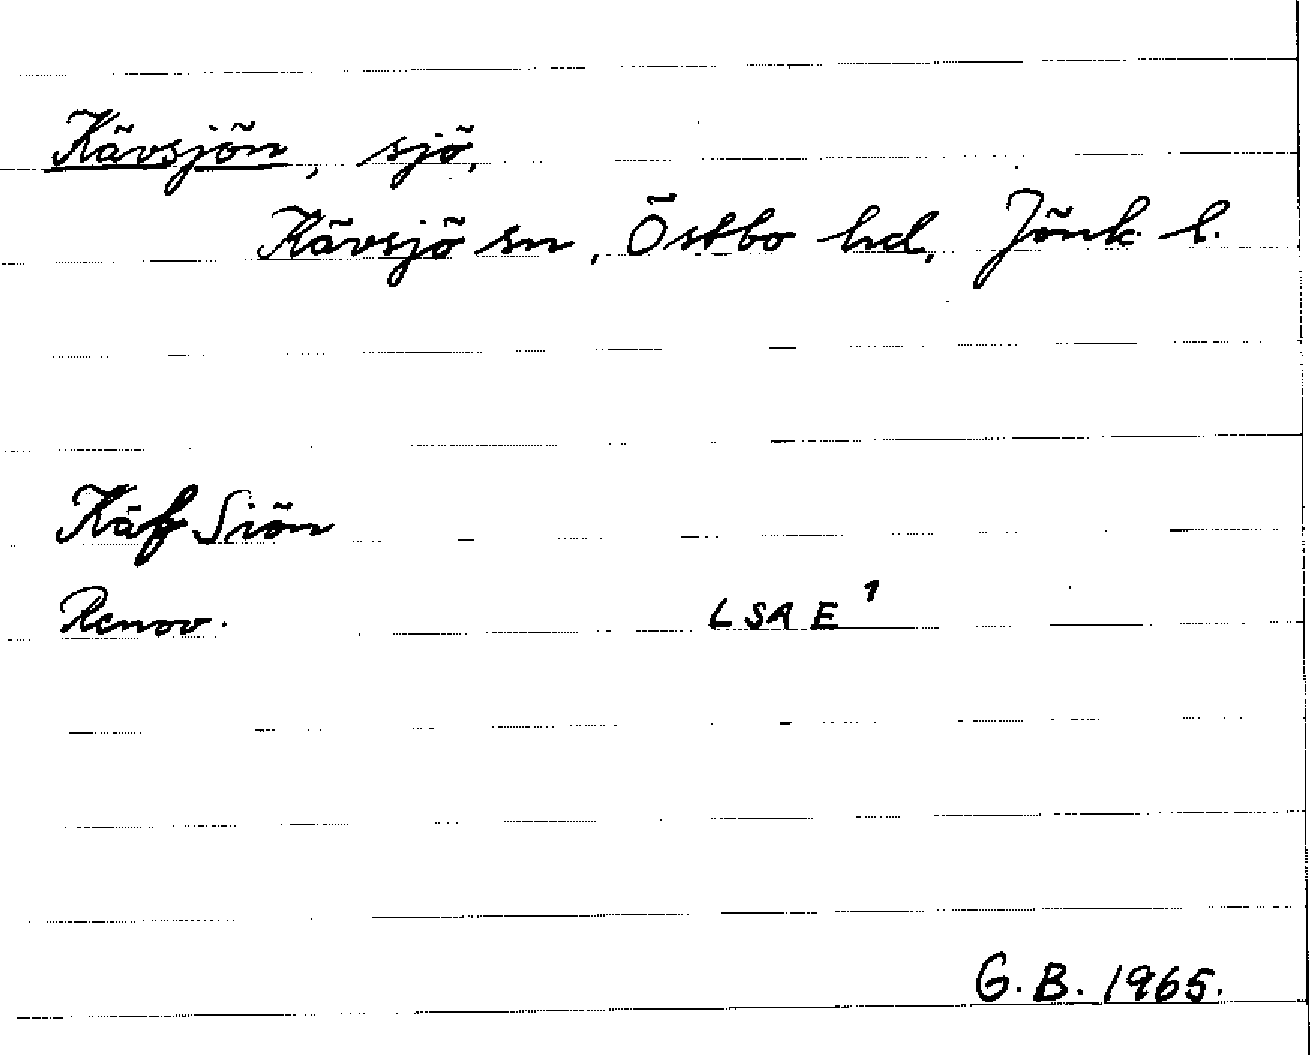 Kävsjön, sjö,
Kävsjö sn, Östbo hd, Jönk. l.
Käf Siön
Renov. LSA E 1
G.B. 1965.